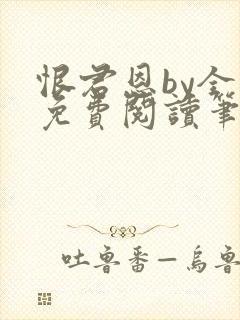 恨君恩by全
免費閱讀筆
吐魯番—烏魯